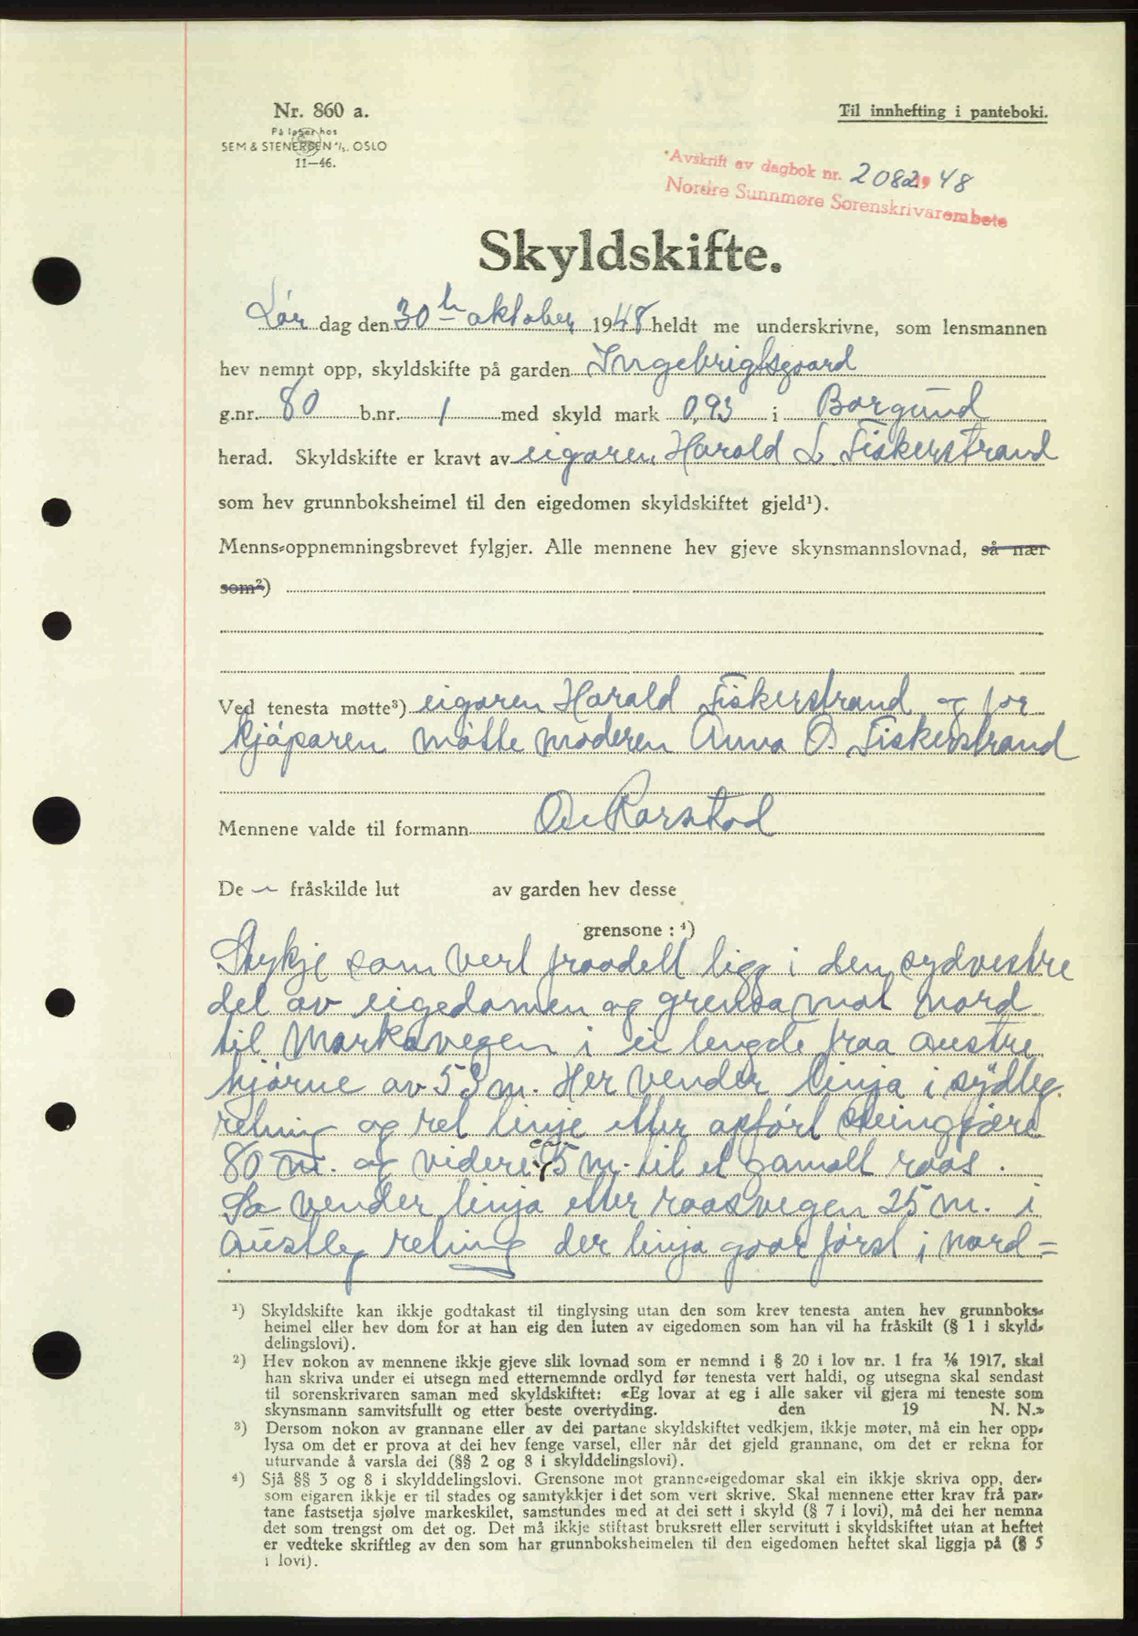 Nr. 860 a.
På lager hos
SEM & STENERSEN A/S. OSLO
11—46.
Til innhefting i panteboki.
Avskrift av dagbok nr. 2082 1948
Nordre Sunnmøre Sorenskrivarembete
Skyldskifte.
Lør dag den 30te oktober 1948 heldt me underskrivne, som lensmannen
hev nemnt opp, skyldskifte på garden Ingebrigtsgaard
g.nr. 80 b.nr. 1 med skyld mark 0,93 i Borgund
herad. Skyldskifte er kravt av eigaren Harald L. Fiskerstrand
som hev grunnboksheimel til den eigedomen skyldskiftet gjeld¹).
Menns-oppnemningsbrevet fylgjer. Alle mennene hev gjeve skynsmannslovnad, så nær
som²)
Ved tenesta møtte³) eigaren Harald Fiskerstrand og for
kjøparen møtte moderen Anna O. Fiskerstrand
Mennene valde til formann O. Rørstad
De fråskilde lut av garden hev desse
grensone : ⁴)
Stykje som vert fraadelt ligg i den sydvestre
del av eigedomen og grensa mot nord
til Markavegen i ei lengde fraa austre
hjørne av 53 m. Her vender linja i sydleg
retning og ret linje etter opført steingjære
80 m. og videre 5 m. til et gamalt raas.
So vender linja etter raasvegen 25 m. i
austleg retning der linja gaar først i nord=
¹) Skyldskifte kan ikkje godtakast til tinglysing utan den som krev tenesta anten hev grunnboks-
heimel eller hev dom for at han eig den luten av eigedomen som han vil ha fråskilt (§ 1 i skyld-
delingslovi).
²) Hev nokon av mennene ikkje gjeve slik lovnad som er nemnd i § 20 i lov nr. 1 fra ¹/₆ 1917, skal
han skriva under ei utsegn med etternemnde ordlyd før tenesta vert haldi, og utsegna skal sendast
til sorenskrivaren saman med skyldskiftet: «Eg lovar at eg i alle saker vil gjera mi teneste som
skynsmann samvitsfullt og etter beste overtyding. den 19 N. N.»
³) Dersom nokon av grannane eller av dei partane skyldskiftet vedkjem, ikkje møter, må ein her opp-
lysa om det er prova at dei hev fenge varsel, eller når det gjeld grannane, om det er rekna for
uturvande å varsla dei (§§ 2 og 8 i skylddelingslovi).
⁴) Sjå §§ 3 og 8 i skylddelingslovi. Grensone mot granne-eigedomar skal ein ikkje skriva opp, der-
som eigaren ikkje er til stades og samtykkjer i det som vert skrive. Skal mennene etter krav frå par-
tane fastsetja sjølve markeskilet, samstundes med at dei sett i skyld (§ 7 i lovi), må dei her nemna
det som trengst om det og. Det må ikkje stiftast bruksrett eller servitutt i skyldskiftet utan at heftet
er vedteke skriftleg av den som har grunnboksheimelen til den eigedomen heftet skal liggja på (§ 5
i lovi).